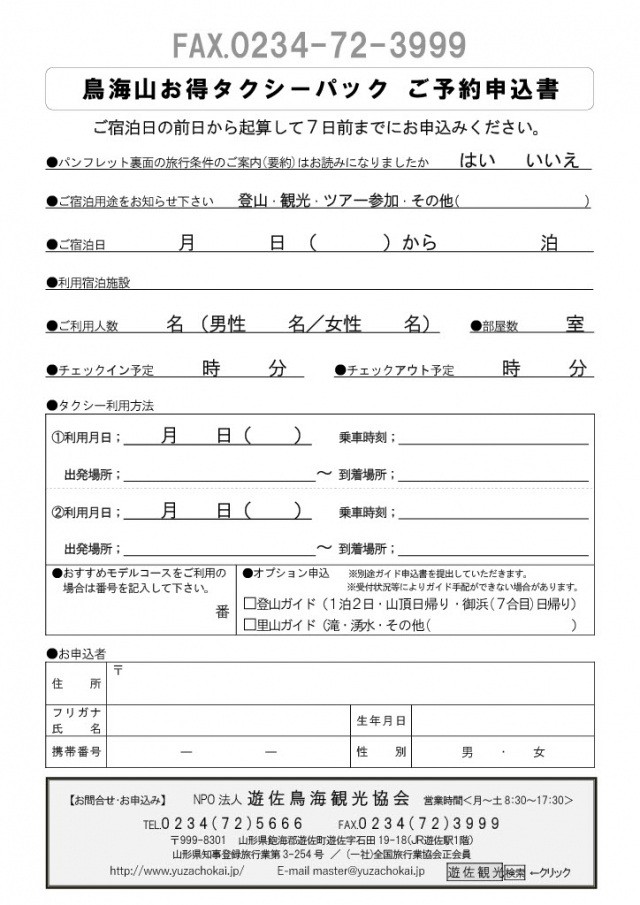 FAX.0234-72-3999
鳥海山お得タクシーパック ご予約申込書
ご宿泊日の前日から起算して7日前までにお申込みください。
●パンフレット裏面の旅行条件のご案内(要約)はお読みになりましたか はい いいえ
●ご宿泊用途をお知らせ下さい 登山・観光・ツアー参加・その他( )
●ご宿泊日 月 日 ( )から 泊
●利用宿泊施設
●ご利用人数 名 (男性 名/女性 名) ●部屋数 室
●チェックイン予定 時 分 ●チェックアウト予定 時 分
●タクシー利用方法
①利用月日; 月 日( ) 乗車時刻;
出発場所; ～ 到着場所;
②利用月日; 月 日( ) 乗車時刻;
出発場所; ～ 到着場所;
●おすすめモデルコースをご利用の
場合は番号を記入して下さい。
番
●オプション申込 ※別途ガイド申込書を提出していただきます。
※受付状況等によりガイド手配ができない場合があります。
□登山ガイド(1泊2日・山頂日帰り・御浜(7合目)日帰り)
□里山ガイド(滝・湧水・その他( )
●お申込者
住 所 〒
フリガナ
氏 名 生年月日
携帯番号 ― ― 性 別 男 ・ 女
【お問合せ・お申込み】 NPO法人 遊佐鳥海観光協会 営業時間<月～土8:30～17:30>
TEL.0234(72)5666 FAX.0234(72)3999
〒999-8301 山形県飽海郡遊佐町遊佐字石田19-18(JR遊佐駅1階)
山形県知事登録旅行業第3-254号 / (一社)全国旅行業協会正会員
http://www.yuzachokai.jp/ E-mail master@yuzachokai.jp 遊佐観光 検索 ←クリック